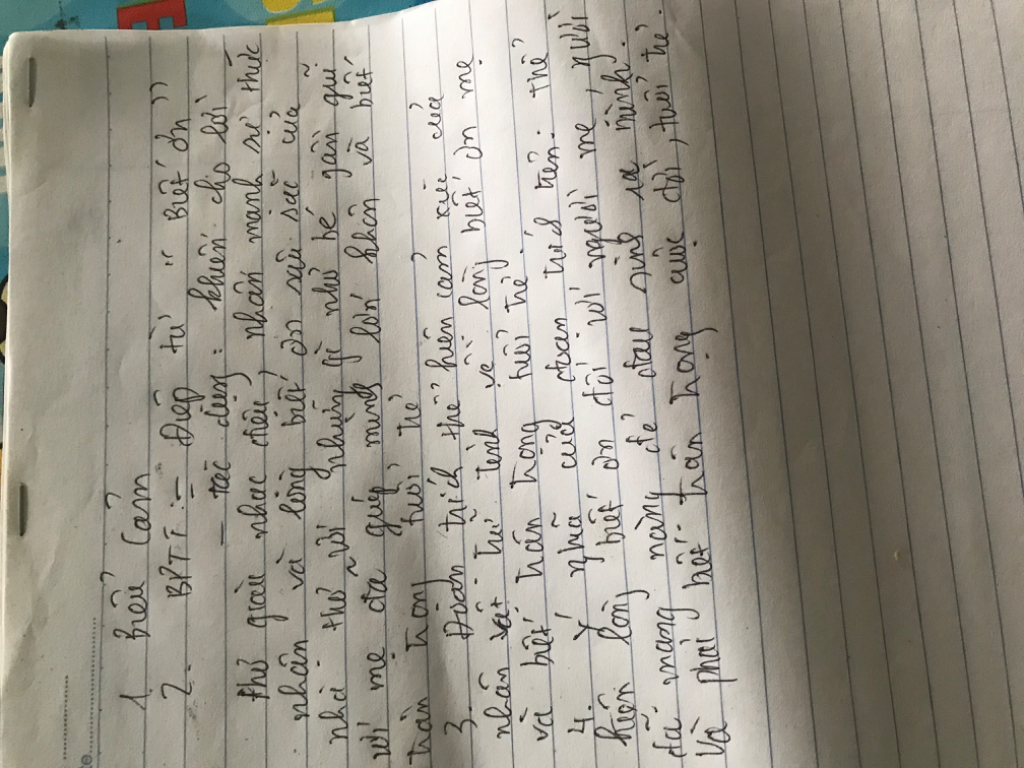 1. Biểu cảm
2. BPTT: - Điệp từ " Biết ơn"
- tác dụng: khiến cho lời
thơ giàu nhạc điệu, nhấn mạnh sự thức
nhận và lòng biết ơn sâu sắc của
nhà thơ với những gì nhỏ bé gần gũi
với mẹ đã giúp mình lớn khôn và biết
trân trọng tuổi trẻ
3. Đoạn trích thể hiện cảm xúc của
nhân vật trữ tình về lòng biết ơn mẹ
và biết trân trọng tuổi trẻ.
4. Ý nghĩa của đoạn trích trên: thể
hiện lòng biết ơn đối với người mẹ, người
đã mang nặng đẻ đau sinh ra mình.
Và phải biết trân trọng cuộc đời, tuổi trẻ.